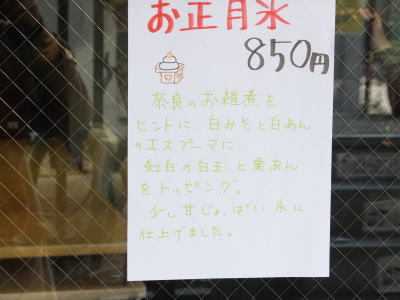 お正月氷
850円
奈良のお雑煮を
ヒントに、白みそと白あん
のエスプーマに、
紅白の白玉と栗あん
をトッピング。
少し甘じょっぱい氷に
仕上げました。